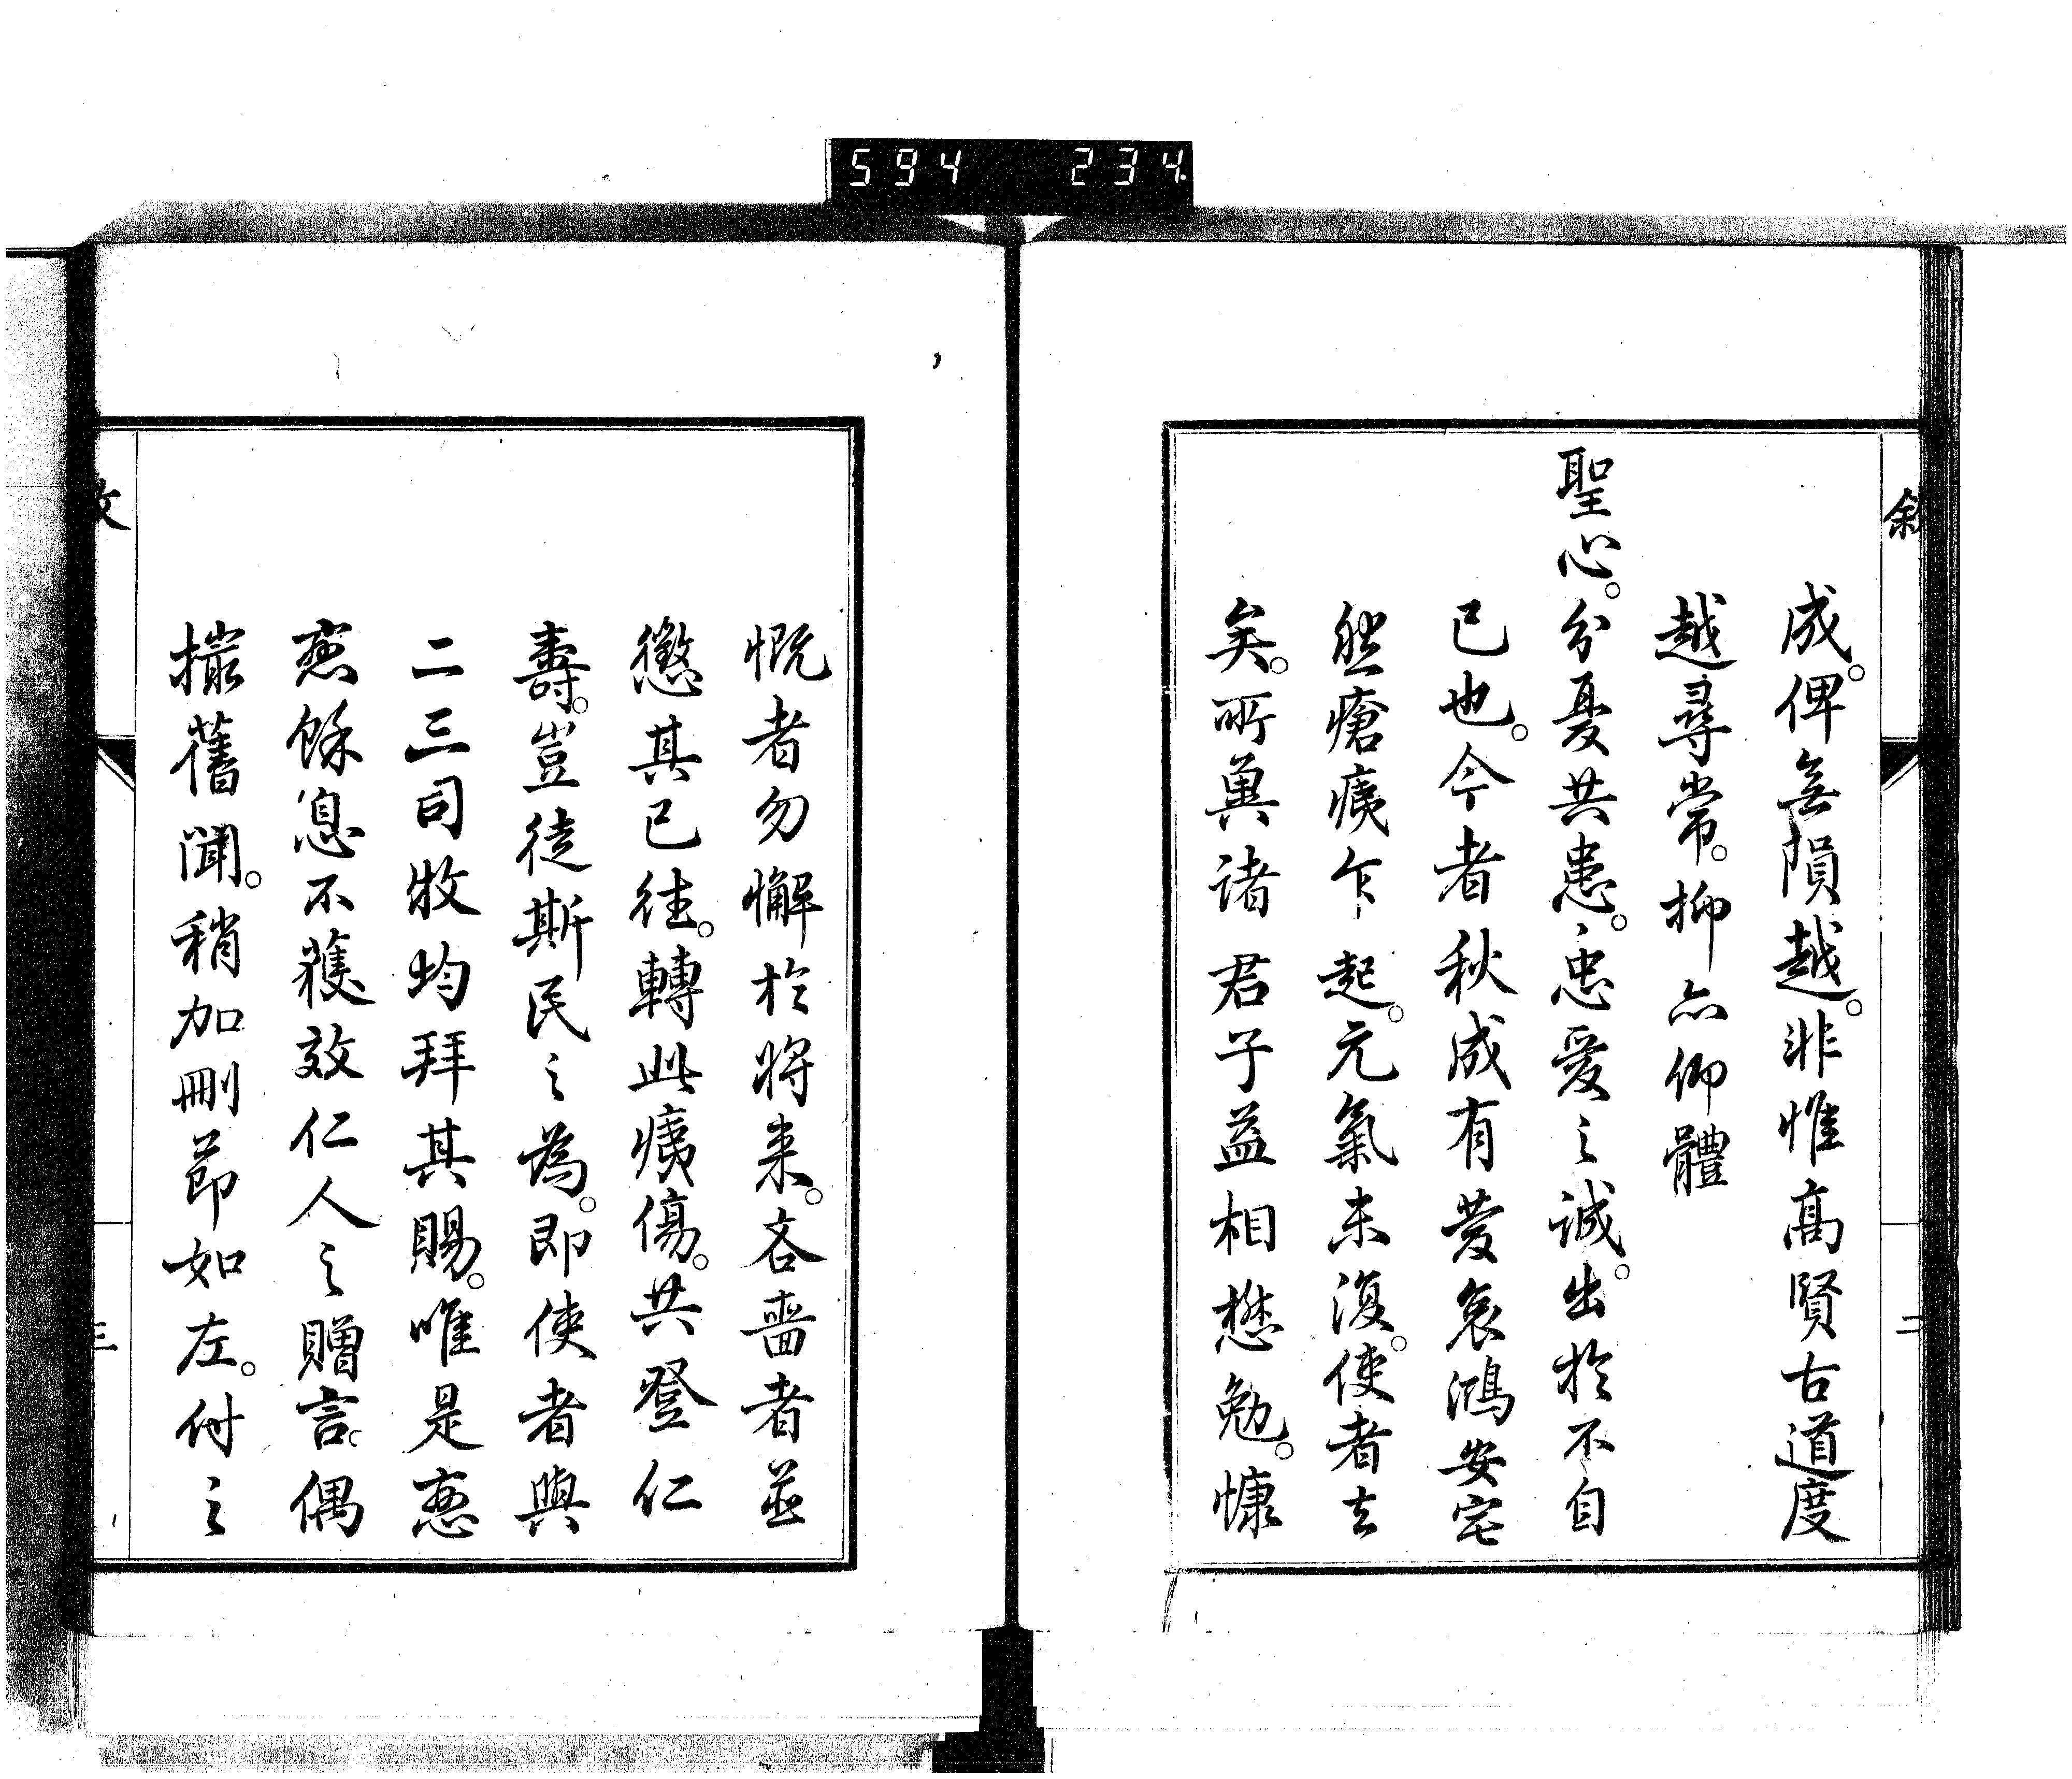 594 234
敘
二
成。俾無隕越。非惟高賢古道度
越尋常。抑亦仰體
聖心。分憂共患。忠愛之誠。出於不自
已也。今者秋成有蔆哀鴻安宅
然瘡痍乍起。元氣未復。使者去
矣。所冀諸君子益相懋勉。慷
慨者勿懈於將來。吝嗇者並
懲其已往。轉此痍傷。共登仁
壽。豈徒斯民之為。即使者與
二三司牧均拜其賜。唯是悤
悤餘息不獲效仁人之贈言。偶
撮舊聞。稍加刪節如左。付之
三